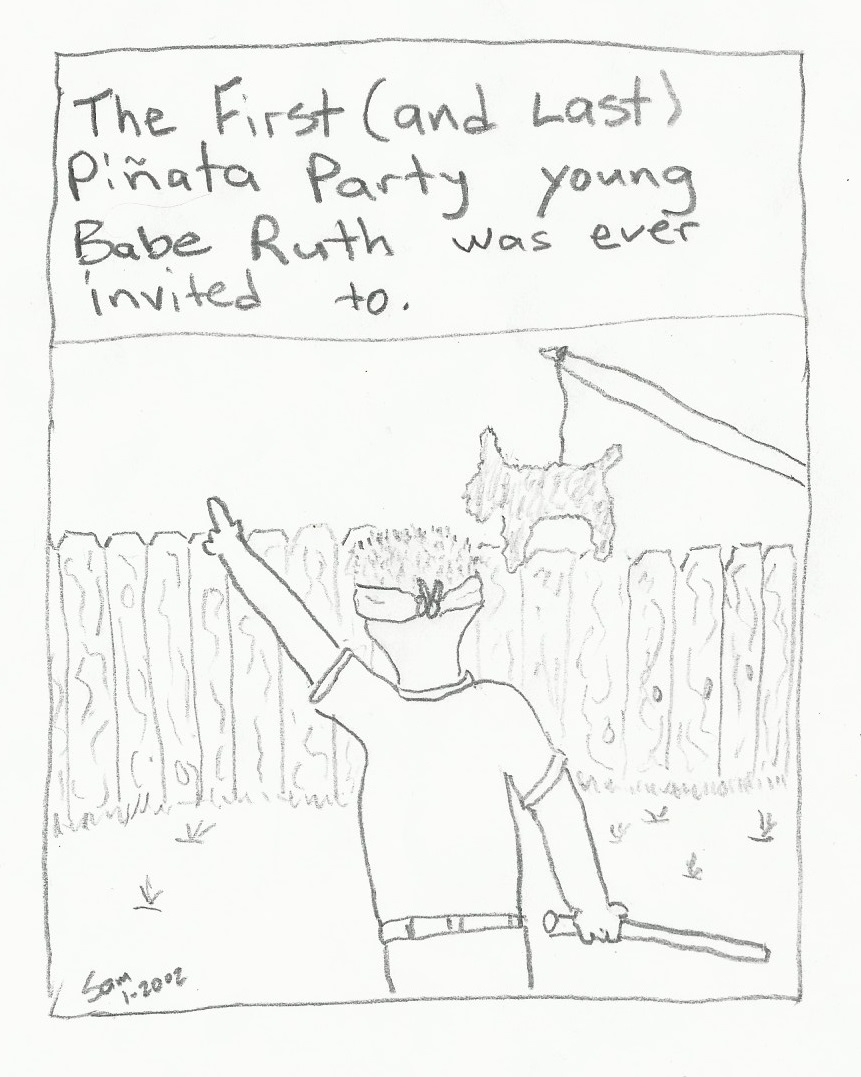 The First (and Last)
Piñata Party young
Babe Ruth was ever
invited to.
Sam
1-2002